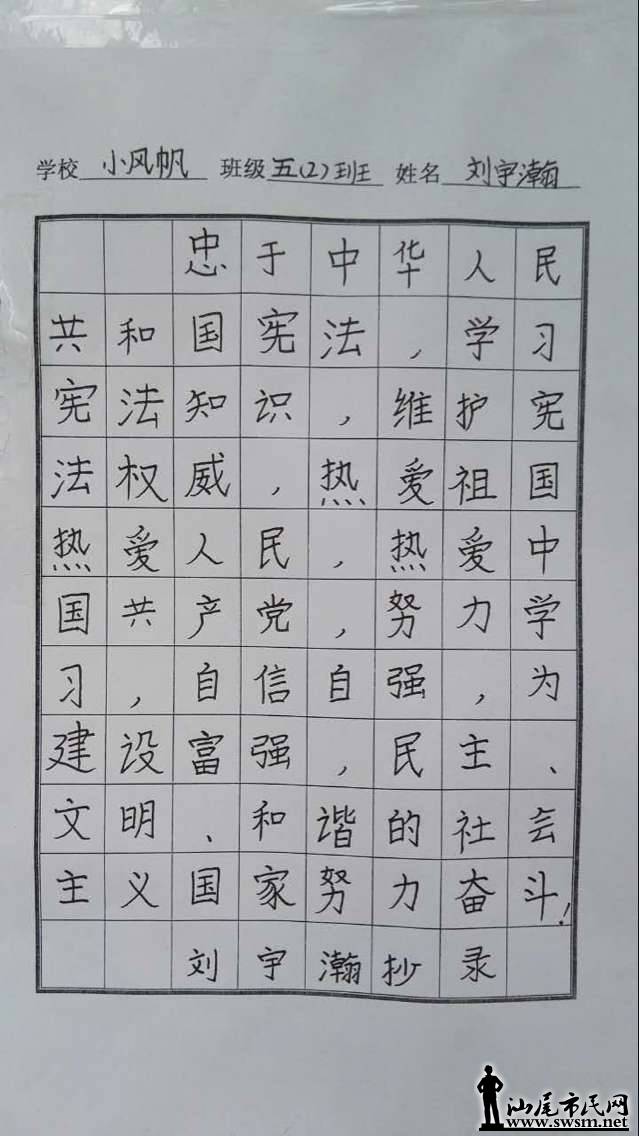 学校 小风帆 班级 五(2)班 姓名 刘宇瀚
忠于中华人民
共和国宪法，学习
宪法知识，维护宪
法权威，热爱祖国
热爱人民，热爱中
国共产党，努力学
习，自信自强，为
建设富强，民主、
文明、和谐的社会
主义国家努力奋斗！
刘宇瀚抄录
汕尾市民网
www.swsm.net